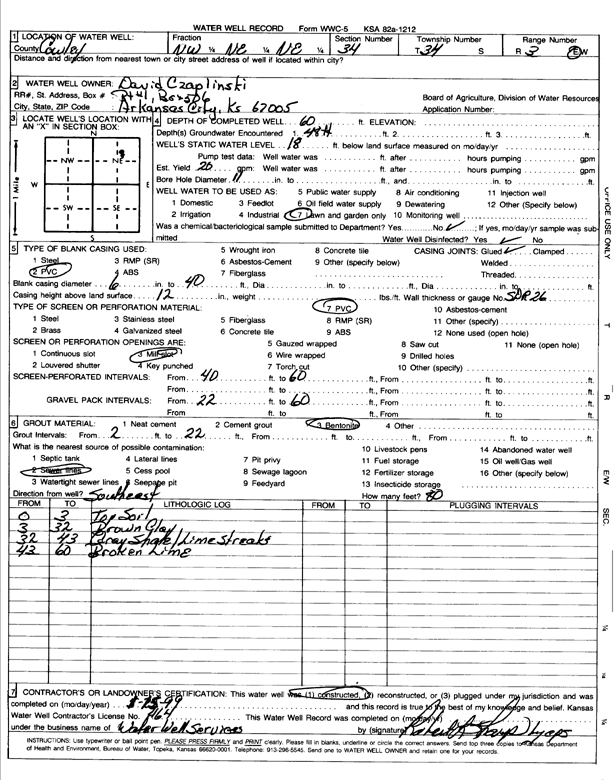 WATER WELL RECORD Form WWC-5 KSA 82a-1212
1 LOCATION OF WATER WELL: Fraction Section Number Township Number Range Number
County: Cowley NW ¼ NE ¼ NE ¼ 34 T 34 S R 3 E/W
Distance and direction from nearest town or city street address of well if located within city?
2 WATER WELL OWNER: David Czaplinski
RR#, St. Address, Box # : Rt 4, Box 506 Board of Agriculture, Division of Water Resources
City, State, ZIP Code : Arkansas City, Ks 67005 Application Number:
3 LOCATE WELL'S LOCATION WITH AN "X" IN SECTION BOX:
N
NW NE
W E
SW SE
S
1 Mile
4 DEPTH OF COMPLETED WELL 60 ft. ELEVATION:
Depth(s) Groundwater Encountered 1. 48 ft. 2. ft. 3. ft.
WELL'S STATIC WATER LEVEL 18 ft. below land surface measured on mo/day/yr
Pump test data: Well water was ft. after hours pumping gpm
Est. Yield 20 gpm: Well water was ft. after hours pumping gpm
Bore Hole Diameter 11 in. to ft., and in. to ft.
WELL WATER TO BE USED AS: 5 Public water supply 8 Air conditioning 11 Injection well
1 Domestic 3 Feedlot 6 Oil field water supply 9 Dewatering 12 Other (Specify below)
2 Irrigation 4 Industrial 7 Lawn and garden only 10 Monitoring well
Was a chemical/bacteriological sample submitted to Department? Yes No ✓; If yes, mo/day/yr sample was submitted
Water Well Disinfected? Yes ✓ No
5 TYPE OF BLANK CASING USED: 5 Wrought iron 8 Concrete tile CASING JOINTS: Glued ✓ Clamped
1 Steel 3 RMP (SR) 6 Asbestos-Cement 9 Other (specify below) Welded
2 PVC 4 ABS 7 Fiberglass Threaded
Blank casing diameter 6 in. to 40 ft., Dia in. to ft., Dia in. to ft.
Casing height above land surface 12 in., weight lbs./ft. Wall thickness or gauge No. SDR 26
TYPE OF SCREEN OR PERFORATION MATERIAL: 7 PVC 10 Asbestos-cement
1 Steel 3 Stainless steel 5 Fiberglass 8 RMP (SR) 11 Other (specify)
2 Brass 4 Galvanized steel 6 Concrete tile 9 ABS 12 None used (open hole)
SCREEN OR PERFORATION OPENINGS ARE: 5 Gauzed wrapped 8 Saw cut 11 None (open hole)
1 Continuous slot 3 Mill slot 6 Wire wrapped 9 Drilled holes
2 Louvered shutter 4 Key punched 7 Torch cut 10 Other (specify)
SCREEN-PERFORATED INTERVALS: From 40 ft. to 60 ft., From ft. to ft.
From ft. to ft., From ft. to ft.
GRAVEL PACK INTERVALS: From 22 ft. to 60 ft., From ft. to ft.
From ft. to ft., From ft. to ft.
6 GROUT MATERIAL: 1 Neat cement 2 Cement grout 3 Bentonite 4 Other
Grout Intervals: From 2 ft. to 22 ft., From ft. to ft., From ft. to ft.
What is the nearest source of possible contamination: 10 Livestock pens 14 Abandoned water well
1 Septic tank 4 Lateral lines 7 Pit privy 11 Fuel storage 15 Oil well/Gas well
2 Sewer lines 5 Cess pool 8 Sewage lagoon 12 Fertilizer storage 16 Other (specify below)
3 Watertight sewer lines 6 Seepage pit 9 Feedyard 13 Insecticide storage
Direction from well? Southeast How many feet? 80
FROM TO LITHOLOGIC LOG FROM TO PLUGGING INTERVALS
0 3 Top Soil
3 32 Brown Clay
32 43 Gray Shale/Lime Streaks
43 60 Broken Lime
7 CONTRACTOR'S OR LANDOWNER'S CERTIFICATION: This water well was (1) constructed, (2) reconstructed, or (3) plugged under my jurisdiction and was
completed on (mo/day/year) and this record is true to the best of my knowledge and belief. Kansas
Water Well Contractor's License No. This Water Well Record was completed on (mo/day/yr)
under the business name of Water Well Services by (signature)
INSTRUCTIONS: Use typewriter or ball point pen. PLEASE PRESS FIRMLY and PRINT clearly. Please fill in blanks, underline or circle the correct answers. Send top three copies to Kansas Department
of Health and Environment, Bureau of Water, Topeka, Kansas 66620-0001. Telephone: 913-296-5545. Send one to WATER WELL OWNER and retain one for your records.
OFFICE USE ONLY
T
R
E/W
SEC.
¼
¼
¼